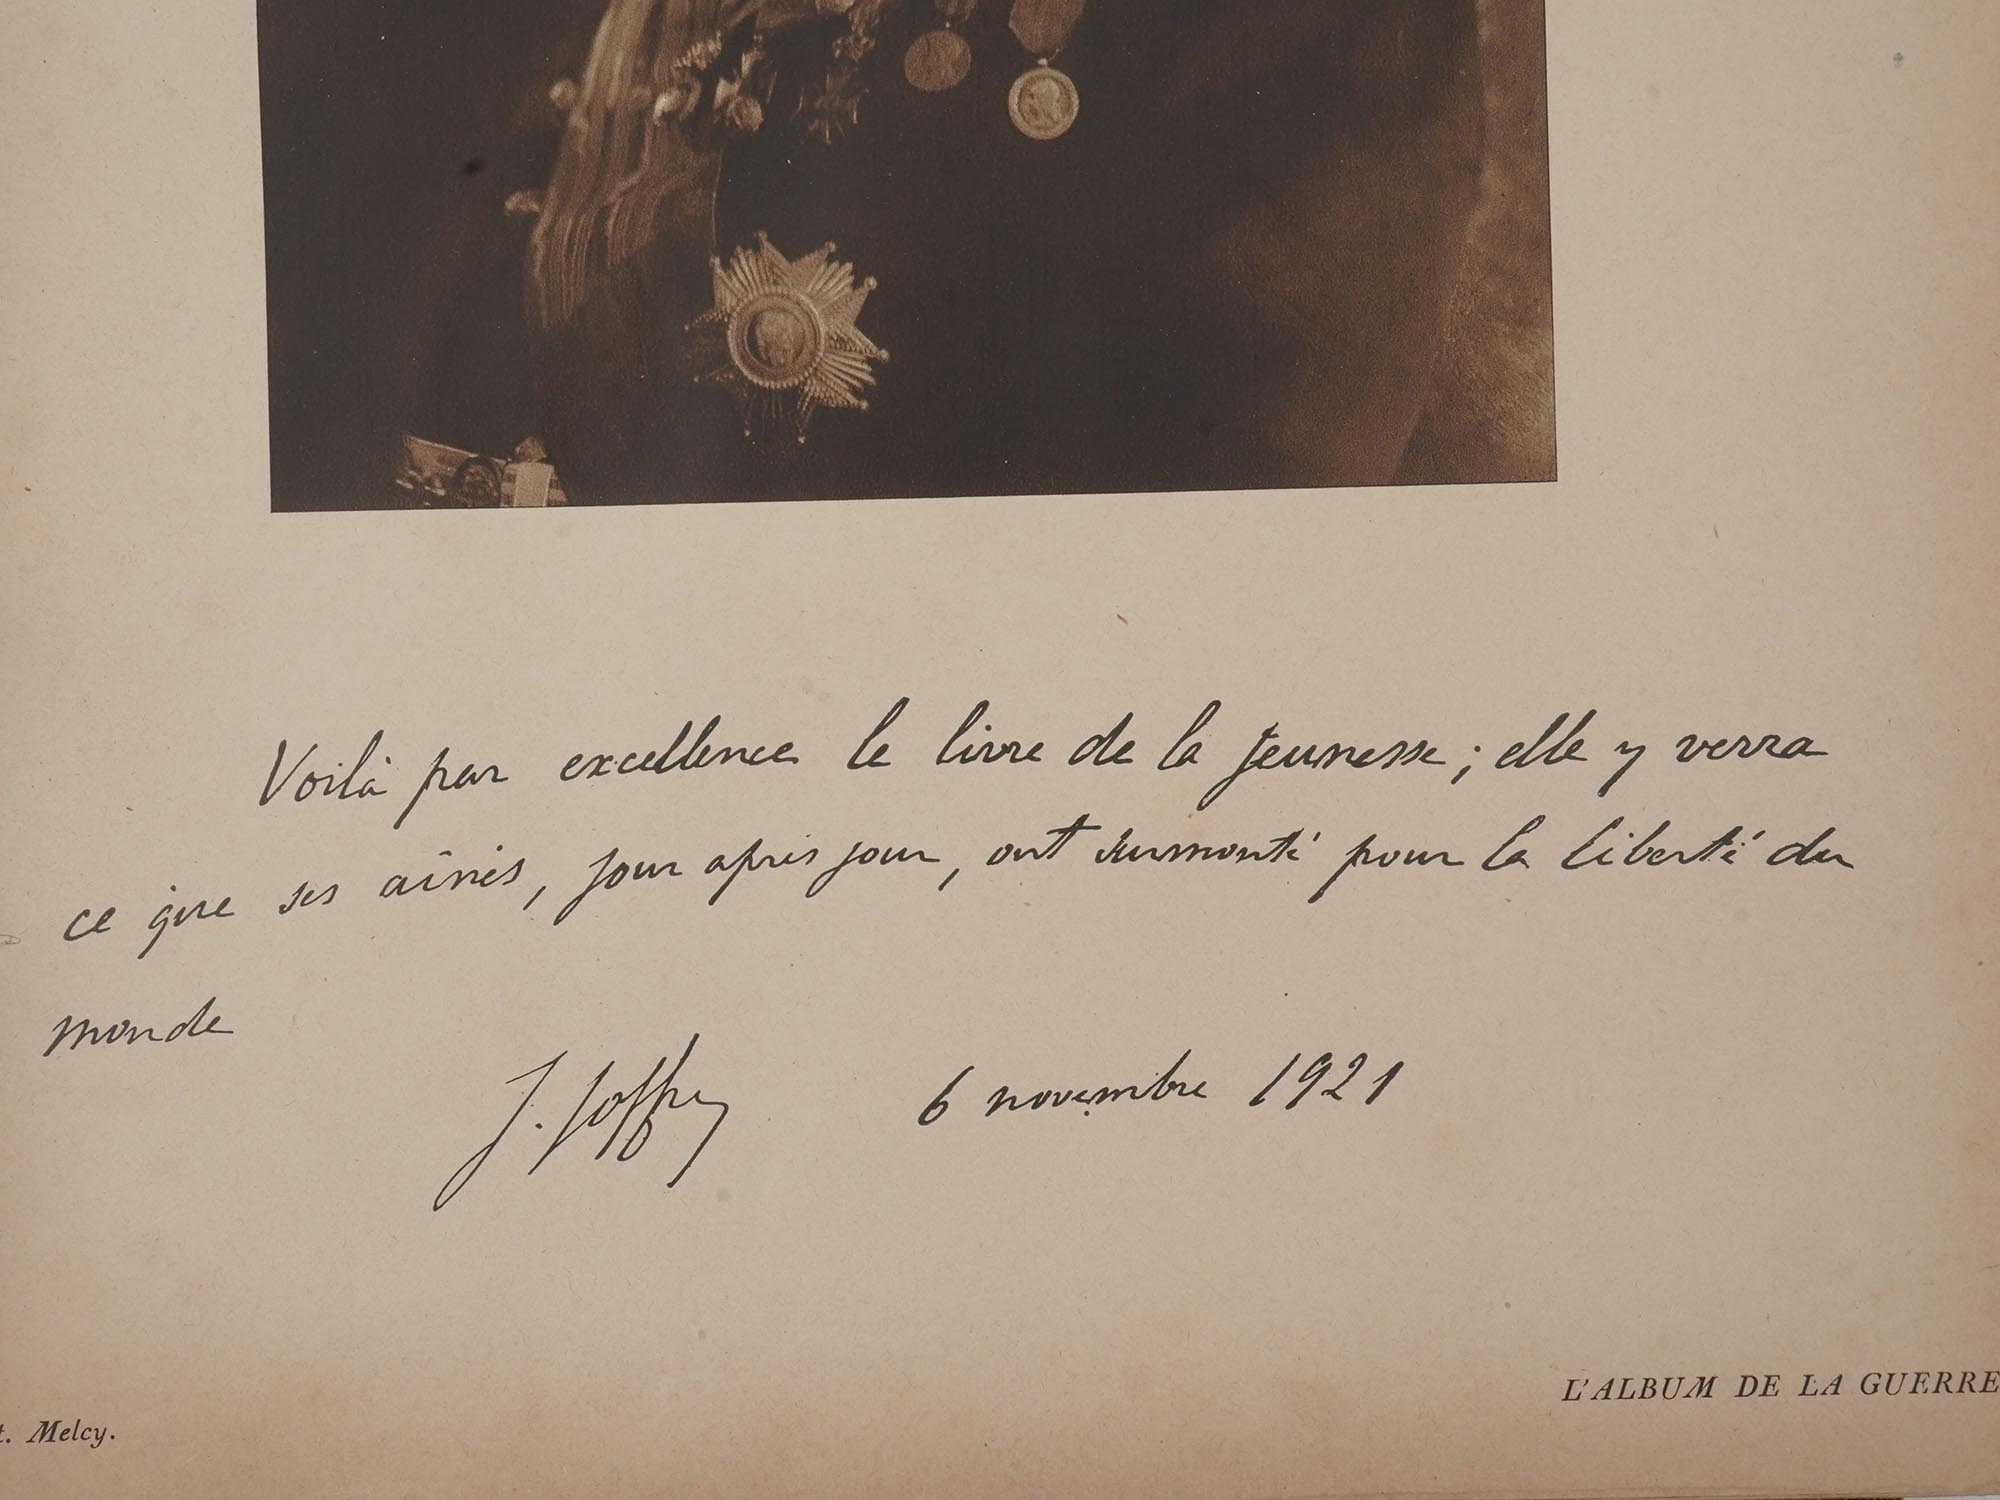 Voilà par excellence le livre de la jeunesse ; elle y verra
ce que ses aînés, jour après jour, ont surmonté pour la liberté du
monde
J. Joffre 6 novembre 1921
t. Melcy.
L'ALBUM DE LA GUERRE